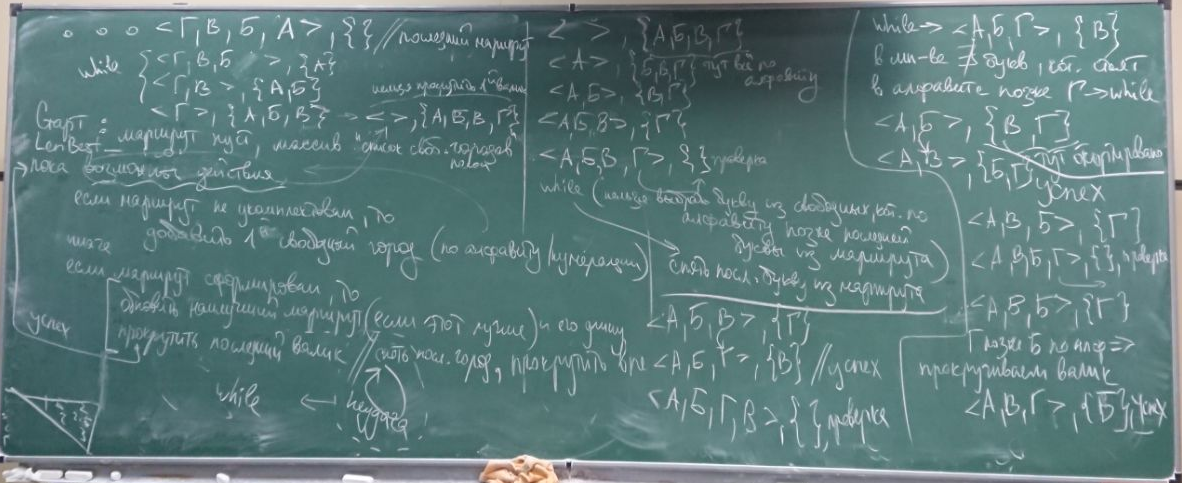 <Г,В,Б,А>,{} // последний маршрут
while
<Г,В,Б>,{А}
<Г,В>,{А,Б}
<Г>,{А,Б,В}
<>,{А,Б,В,Г}
нельзя прокрутить 1й валик
Старт:
LenBest_маршрут пуст, массив "список своб. городов" полон
пока возможны действия
если маршрут не укомплектован, то
добавить 1й свободный город (по алфавиту/нумерации)
иначе
если маршрут сформирован, то
обновить наилучший маршрут (если этот лучше) и его длину
прокрутить последний валик // снять посл. город, прокрутить
успех
while ← неудача
< >, {А,Б,В,Г}
<А>, {Б,В,Г} тут всё по алфавиту
<А,Б>, {В,Г}
<А,Б,В>, {Г}
<А,Б,В,Г>, {} проверка
while (нельзя выбрать букву из свободных, кот. по
алфавиту позже последней
буквы из маршрута)
снять посл. букву из маршрута
<А,Б,В>, {Г}
<А,Б,Г>, {В} // успех
<А,Б,Г,В>, {}, проверка
while → <А,Б,Г>, {В}
в мн-ве ∄ букв, кот. стоят
в алфавите позже Г → while
<А,Б>, {В,Г}
<А,В>, {Б,Г} успех
тут
<А,В,Б>, {Г}
<А,В,Б,Г>, {}, проверка
<А,В,Б>, {Г}
Г позже Б по алф ⇒
прокручиваем валик
<А,В,Г>, {Б}, успех